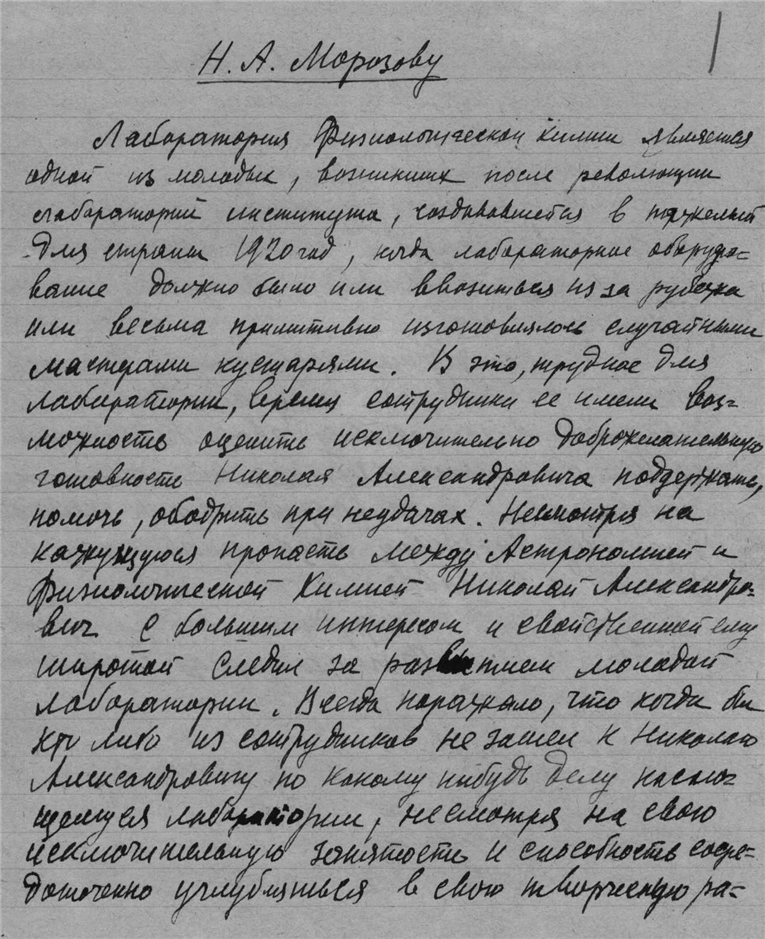 Н. А. Морозову
Лаборатория Физиологической Химии является
одной из молодых, возникших после революции
лабораторий института, создававшейся в тяжелый
для страны 1920 год, когда лабораторное оборудо=
вание должно было или ввозиться из за рубежа
или весьма примитивно изготовлялось случайными
мастерами кустарями. В это, трудное для
лаборатории, время сотрудники ее имели воз=
можность оценить исключительно доброжелательную
готовность Николая Александровича поддержать,
помочь, ободрить при неудачах. Несмотря на
кажущуюся пропасть между Астрономией и
Физиологической Химией Николай Александро=
вич с большим интересом и свойственной ему
широтой следил за развитием молодой
лаборатории. Всегда поражало, что когда бы
кто либо из сотрудников не зашел к Николаю
Александровичу по какому нибудь делу касаю=
щемуся лаборатории, несмотря на свою
исключительную занятость и способность сосре=
доточенно углубляться в свою творческую ра=